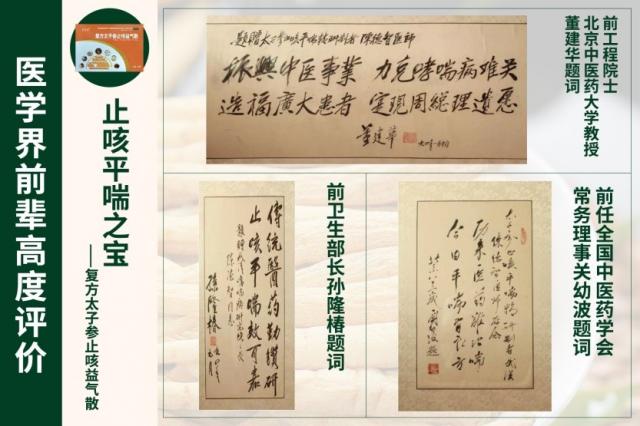 复方太子参止咳益气散
医学界前辈高度评价
止咳平喘之宝
——复方太子参止咳益气散
振兴中医事業 力克哮喘病难关
造福廣大患者 实现周総理遗愿
董建华
前工程院士
北京中医药大学教授
董建华题词
傳統醫药勤鑽研
止咳平喘效可嘉
孫隆椿
前卫生部长孙隆椿题词
历来医药难治喘
今日平喘有良方
前任全国中医药学会
常务理事关幼波题词